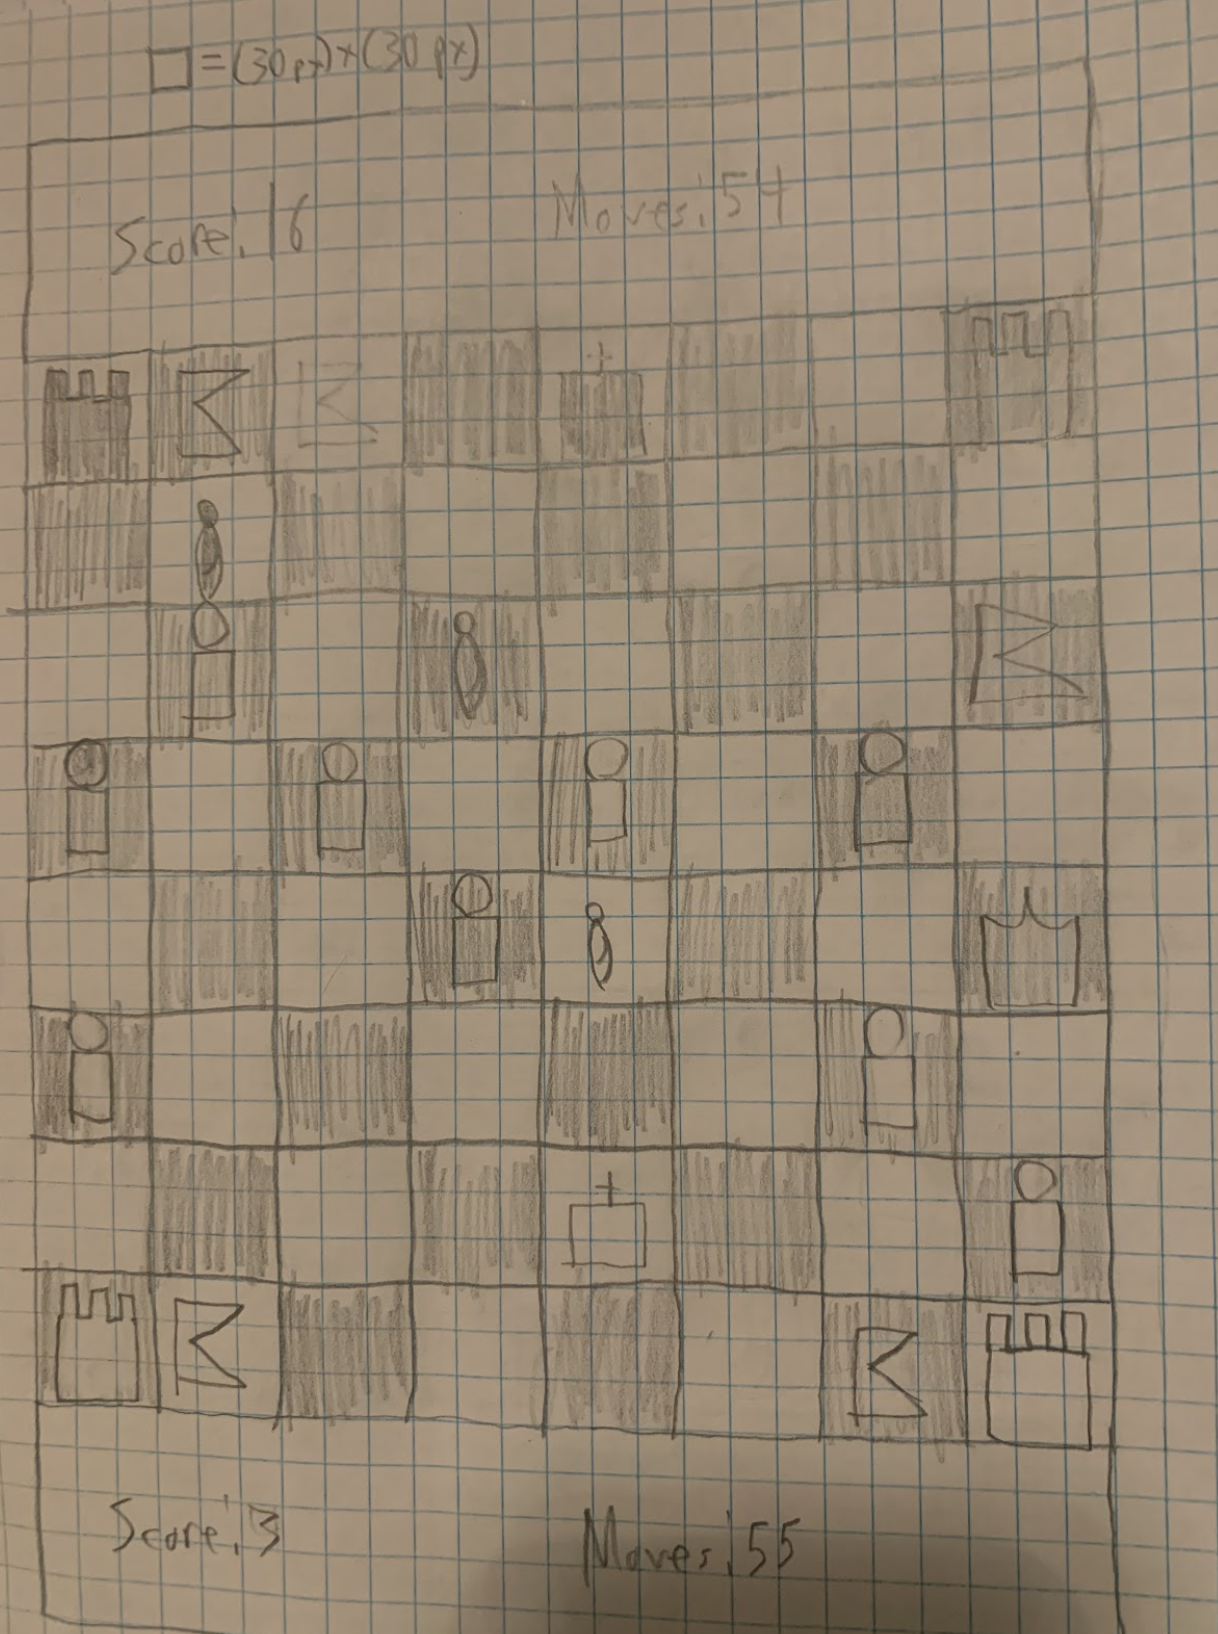 □ = (30 px) × (30 px)
Score: 16 Moves: 54
Score: 3 Moves: 55